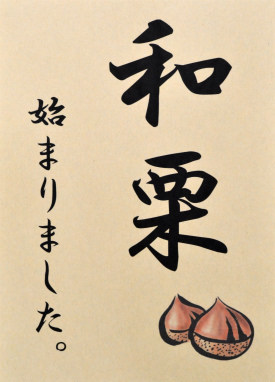 和栗
始まりました。